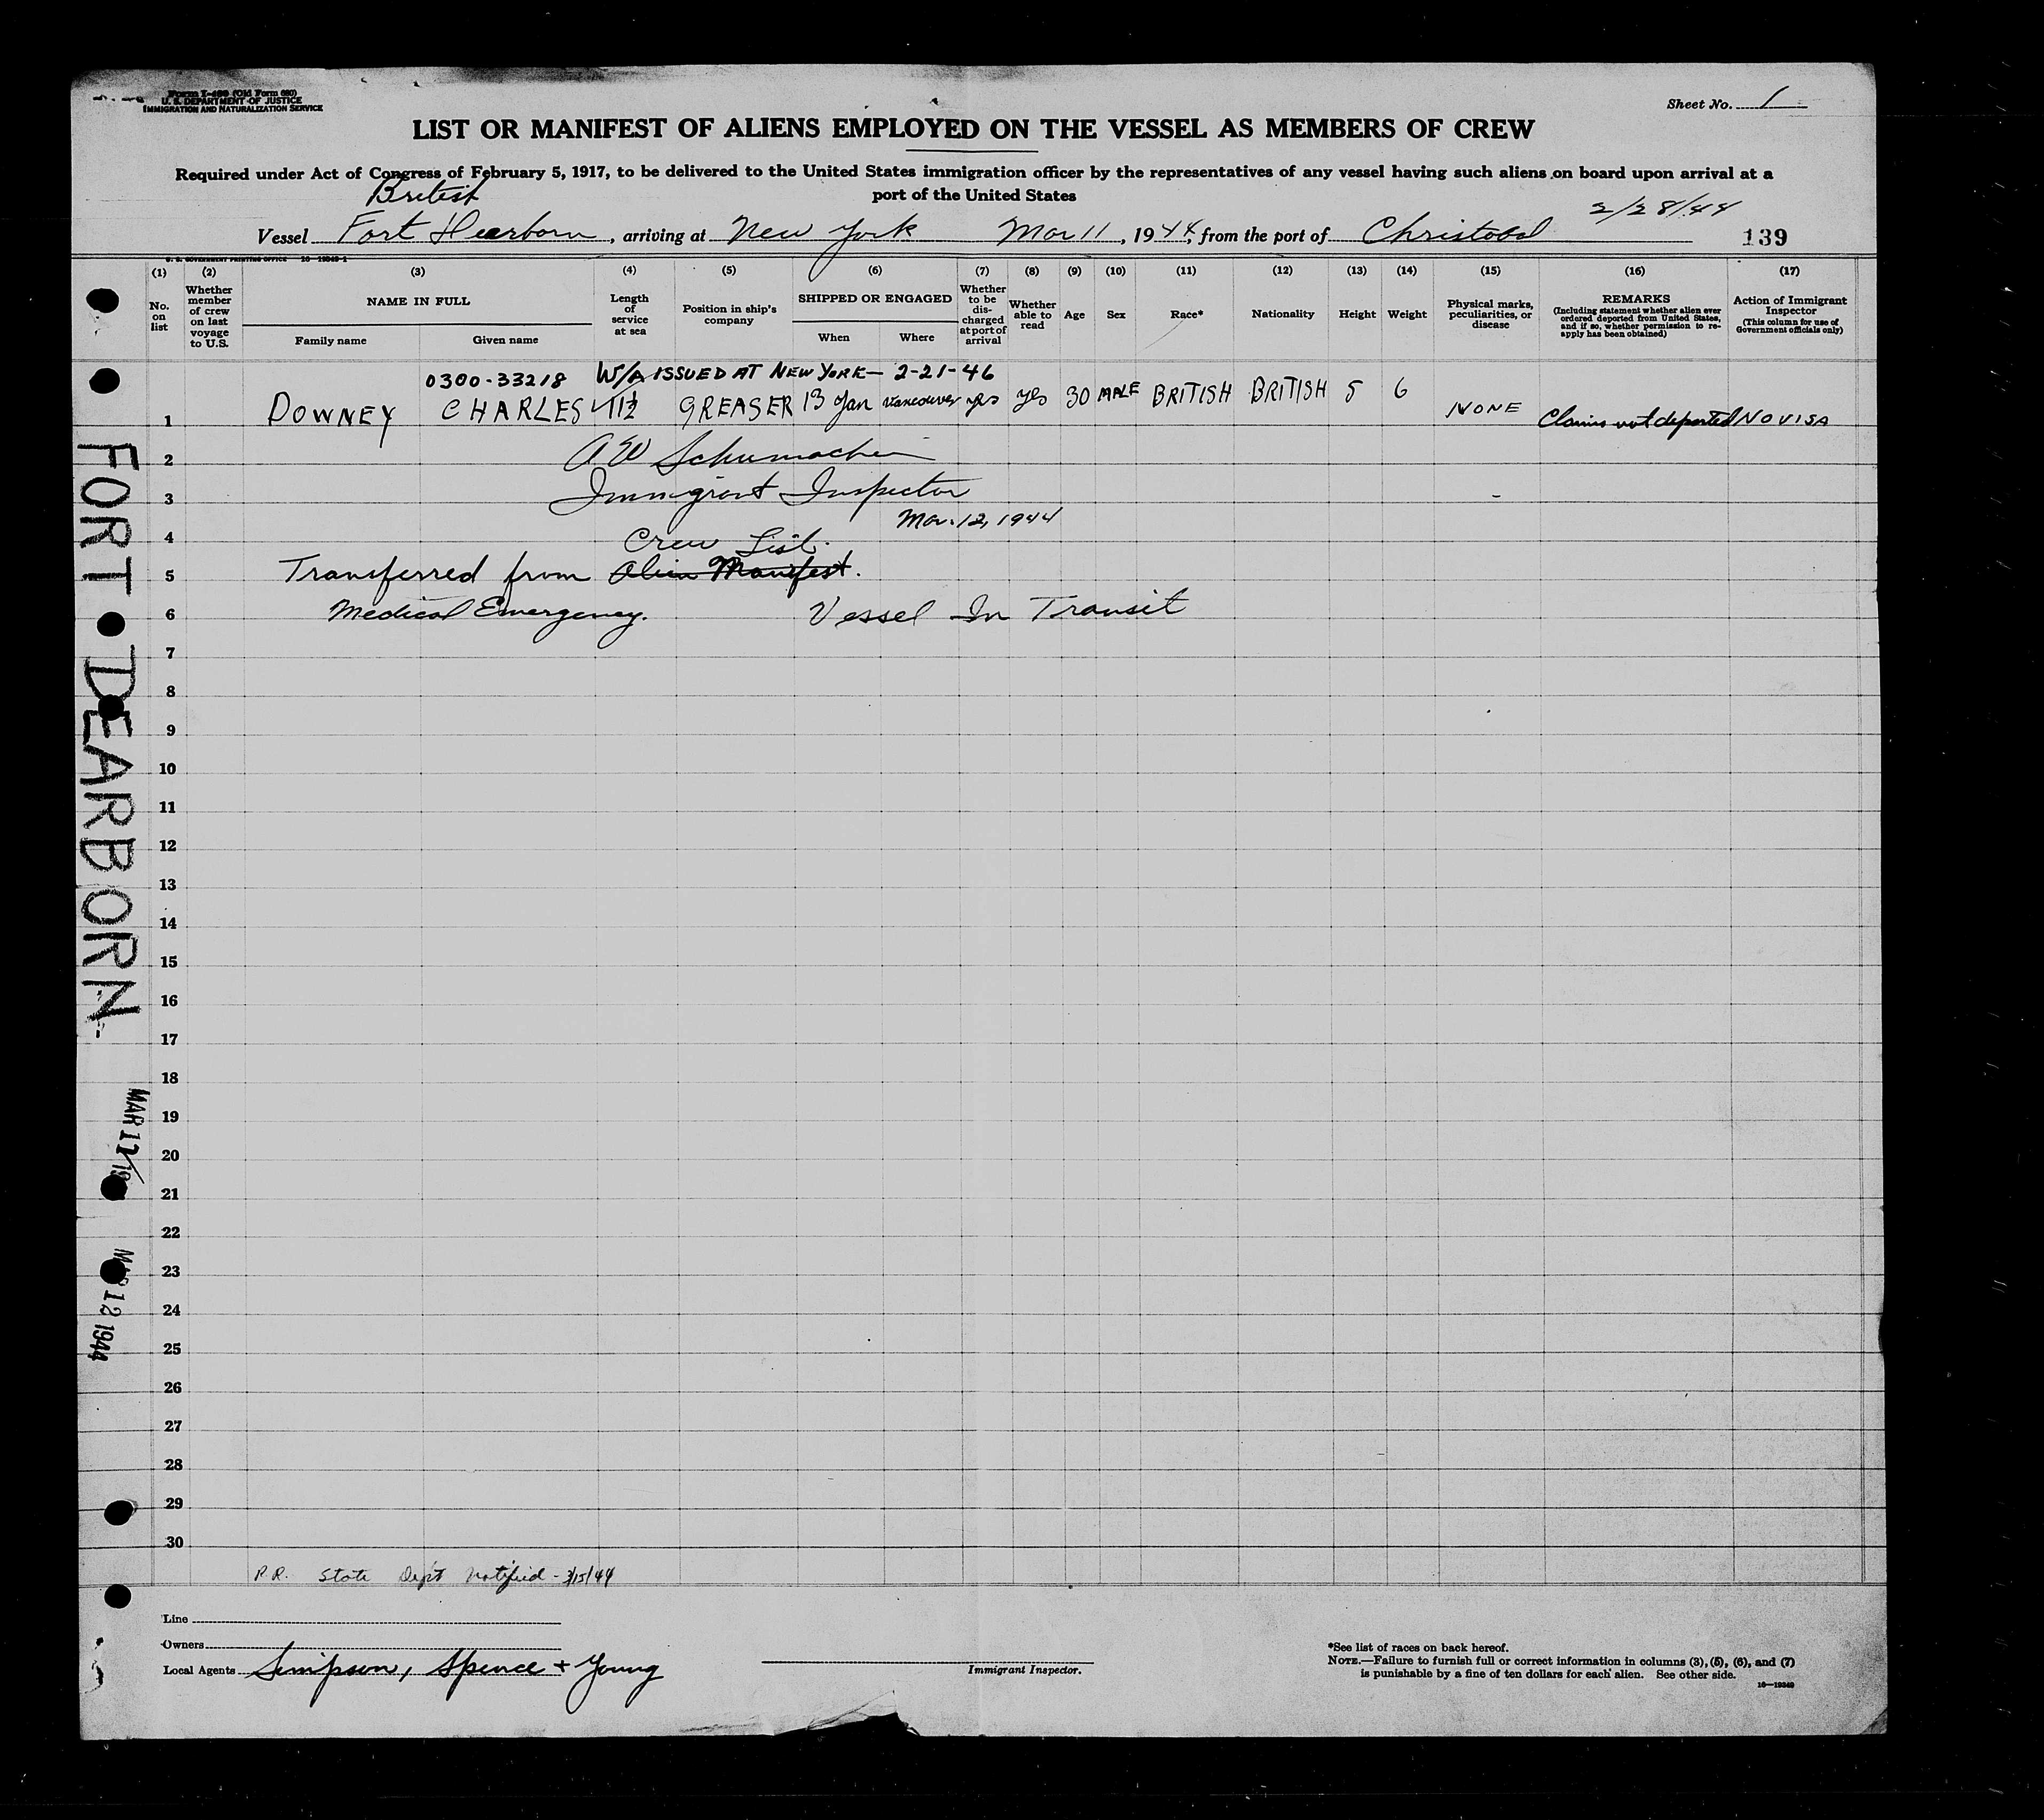 Form I-489 (Old Form 680)
U. S. DEPARTMENT OF JUSTICE
IMMIGRATION AND NATURALIZATION SERVICE
Sheet No. 1
LIST OR MANIFEST OF ALIENS EMPLOYED ON THE VESSEL AS MEMBERS OF CREW
Required under Act of Congress of February 5, 1917, to be delivered to the United States immigration officer by the representatives of any vessel having such aliens on board upon arrival at a
port of the United States
British
2/28/44
Vessel Fort Dearborn, arriving at New York Mar 11, 1944, from the port of Christobal
139
U. S. GOVERNMENT PRINTING OFFICE 16—19349-1
(1) (2) (3) (4) (5) (6) (7) (8) (9) (10) (11) (12) (13) (14) (15) (16) (17)
No. on list
Whether member of crew on last voyage to U.S.
NAME IN FULL
Family name
Given name
Length of service at sea
Position in ship's company
SHIPPED OR ENGAGED
When
Where
Whether to be discharged at port of arrival
Whether able to read
Age
Sex
Race*
Nationality
Height
Weight
Physical marks, peculiarities, or disease
REMARKS
(Including statement whether alien ever ordered deported from United States, and if so, whether permission to re-apply has been obtained)
Action of Immigrant Inspector
(This column for use of Government officials only)
0300-33218 W/A ISSUED AT NEW YORK— 2-21-46
1 DOWNEY CHARLES 11½ GREASER 13 Jan Vancouver yes yes 30 MALE BRITISH BRITISH 5 6 NONE Claims not deported NO VISA
2 A W Schumacher
3 Immigrant Inspector
Mar. 12, 1944
4 Crew List.
5 Transferred from Alien Manifest.
6 Medical Emergency. Vessel In Transit
7
8
9
10
11
12
13
14
15
16
17
18
19
20
21
22
23
24
25
26
27
28
29
30
P.R. State Dept notified - 3/15/44
Line
Owners
Local Agents Simpson, Spence + Young
Immigrant Inspector.
*See list of races on back hereof.
NOTE.—Failure to furnish full or correct information in columns (3), (5), (6), and (7)
is punishable by a fine of ten dollars for each alien. See other side.
16—19349
FORT DEARBORN
MAR 12 1944